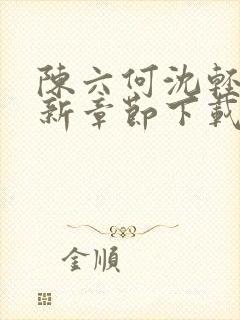 陳六何沈輕
新章節下載
金順